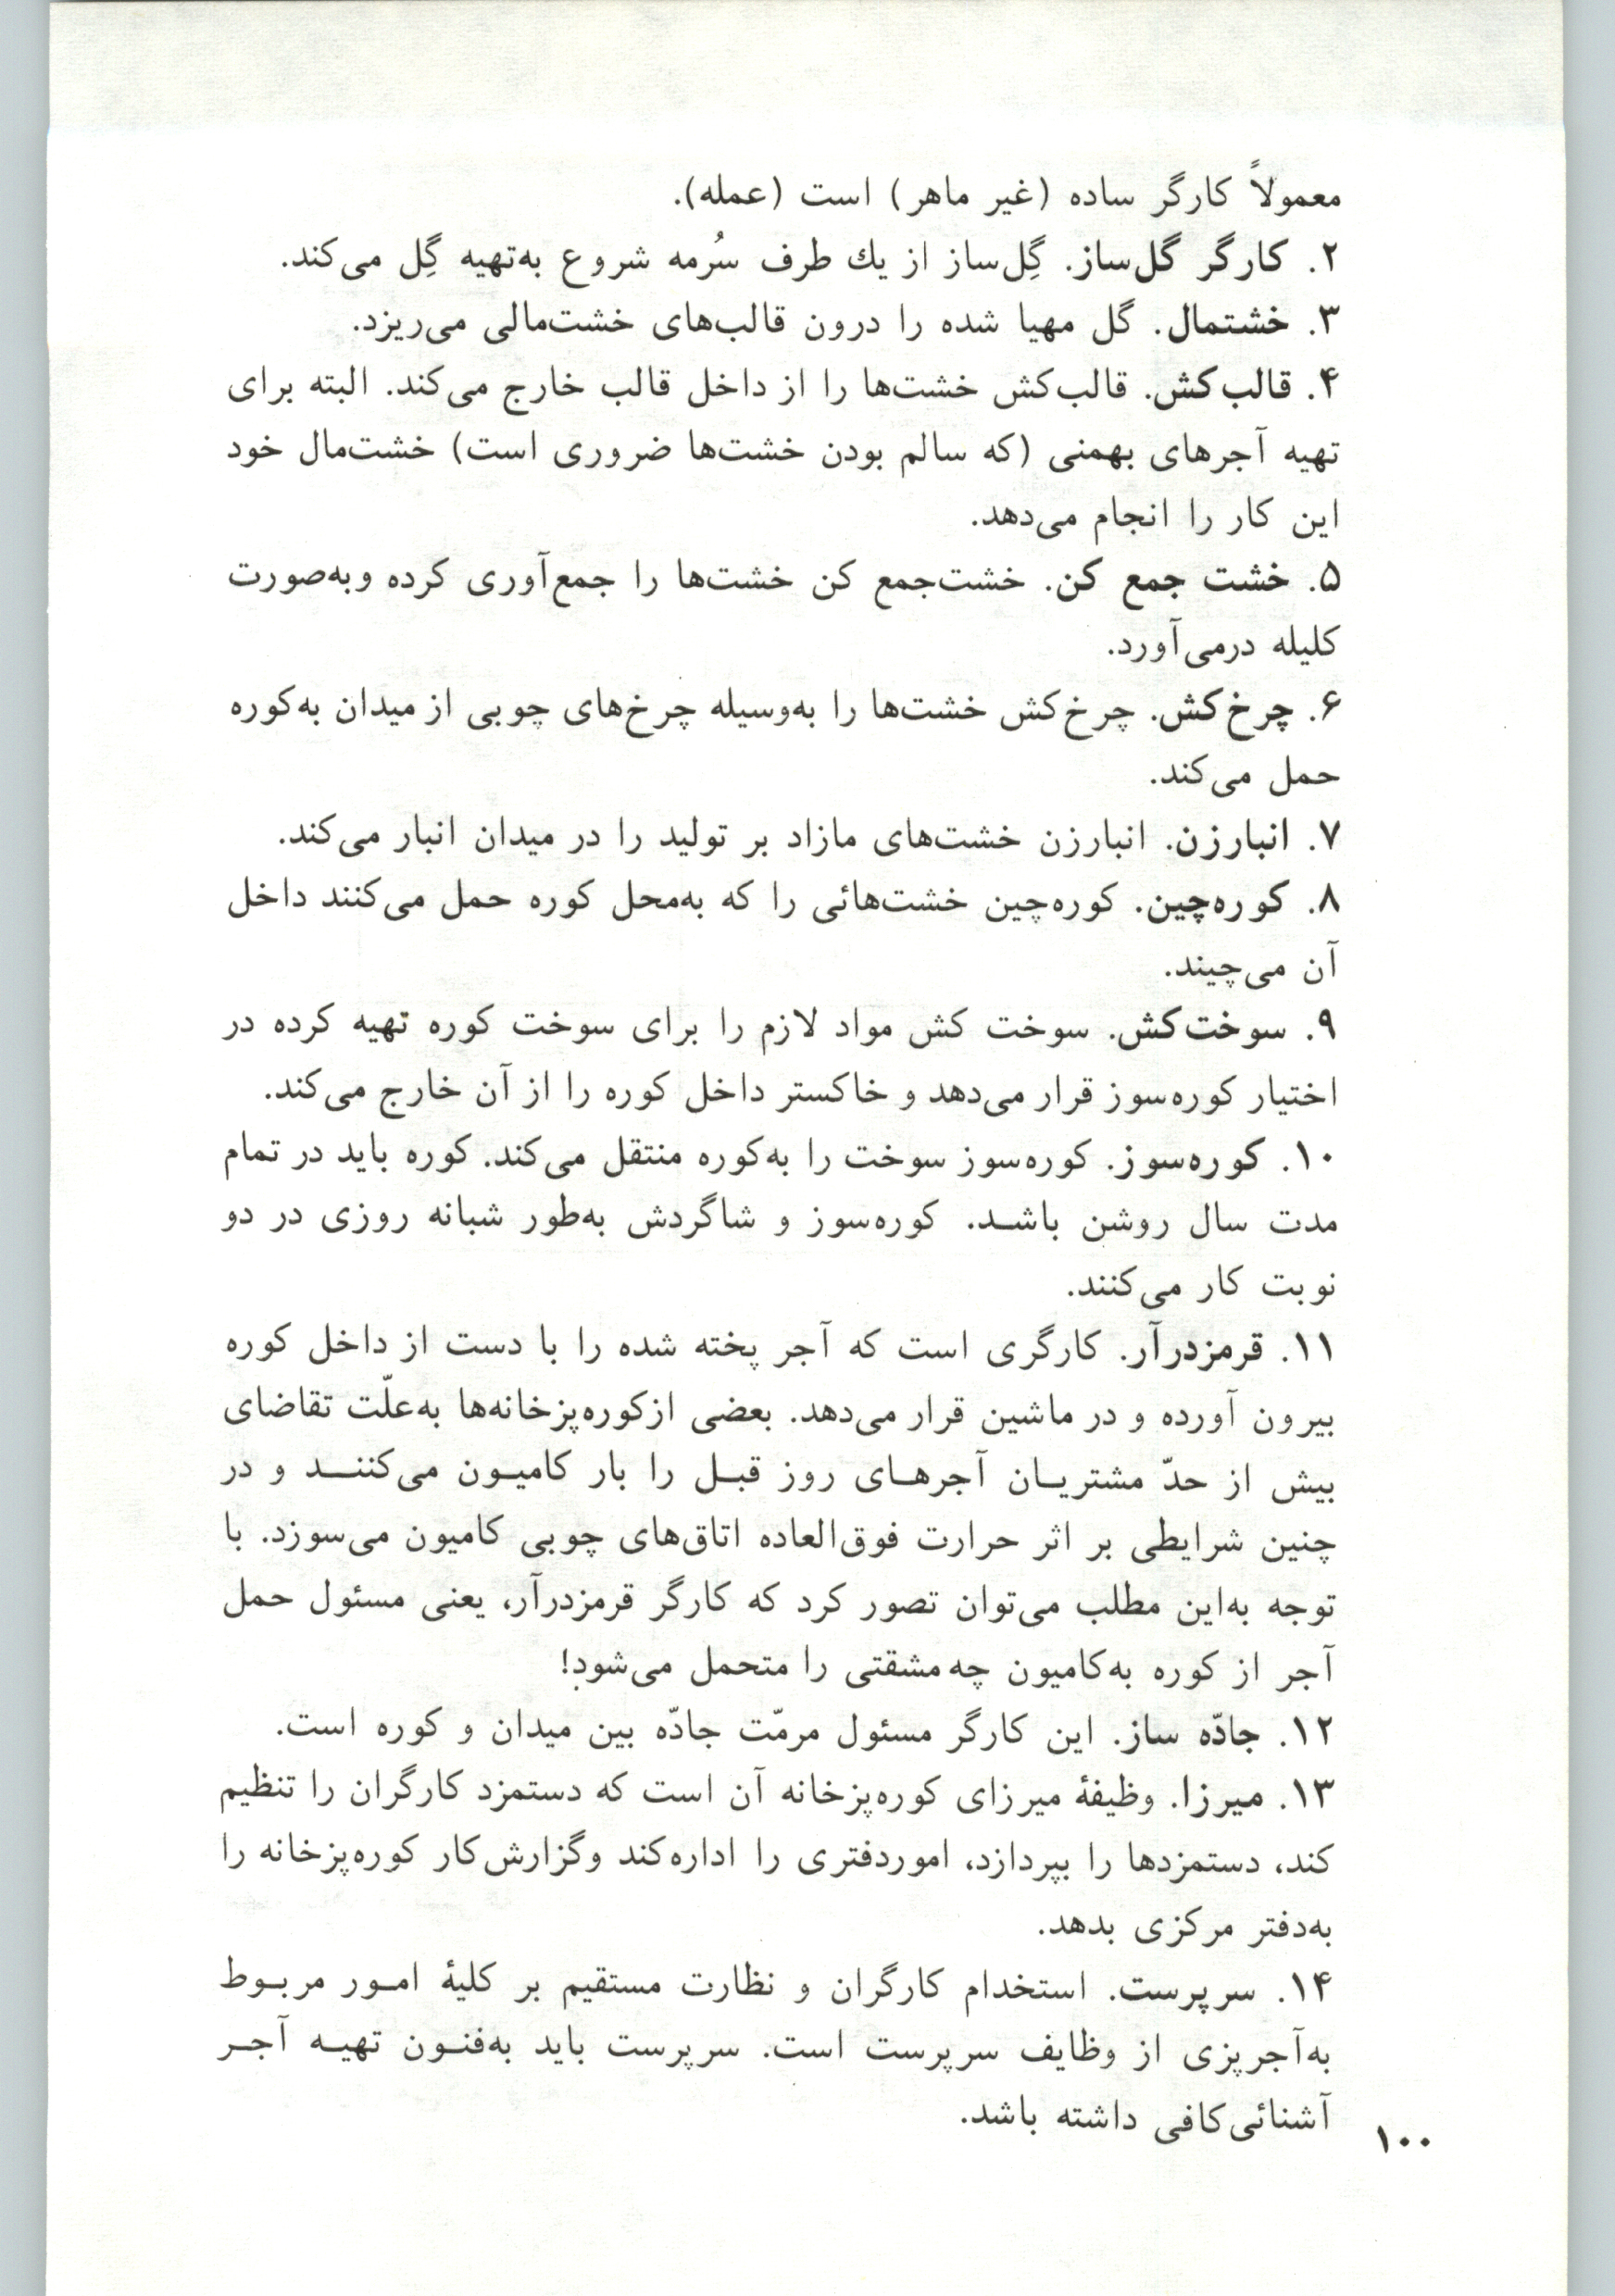 معمولاً کارگر ساده (غیر ماهر) است (عمله).
۲. کارگر گل‌ساز. گِل‌ساز از یك طرف سُرمه شروع به‌تهیه گِل می‌کند.
۳. خشتمال. گل مهیا شده را درون قالب‌های خشت‌مالی می‌ریزد.
۴. قالب‌کش. قالب‌کش خشت‌ها را از داخل قالب خارج می‌کند. البته برای
تهیه آجرهای بهمنی (که سالم بودن خشت‌ها ضروری است) خشت‌مال خود
این کار را انجام می‌دهد.
۵. خشت جمع کن. خشت‌جمع کن خشت‌ها را جمع‌آوری کرده وبه‌صورت
کلیله درمی‌آورد.
۶. چرخ‌کش. چرخ‌کش خشت‌ها را به‌وسیله چرخ‌های چوبی از میدان به‌کوره
حمل می‌کند.
۷. انبارزن. انبارزن خشت‌های مازاد بر تولید را در میدان انبار می‌کند.
۸. کوره‌چین. کوره‌چین خشت‌هائی را که به‌محل کوره حمل می‌کنند داخل
آن می‌چیند.
۹. سوخت‌کش. سوخت کش مواد لازم را برای سوخت کوره تهیه کرده در
اختیار کوره‌سوز قرار می‌دهد و خاکستر داخل کوره را از آن خارج می‌کند.
۱۰. کوره‌سوز. کوره‌سوز سوخت را به‌کوره منتقل می‌کند. کوره باید در تمام
مدت سال روشن باشد. کوره‌سوز و شاگردش به‌طور شبانه روزی در دو
نوبت کار می‌کنند.
۱۱. قرمزدرآر. کارگری است که آجر پخته شده را با دست از داخل کوره
بیرون آورده و در ماشین قرار می‌دهد. بعضی ازکوره‌پزخانه‌ها به‌علّت تقاضای
بیش از حدّ مشتریان آجرهای روز قبل را بار کامیون می‌کنند و در
چنین شرایطی بر اثر حرارت فوق‌العاده اتاق‌های چوبی کامیون می‌سوزد. با
توجه به‌این مطلب می‌توان تصور کرد که کارگر قرمزدرآر، یعنی مسئول حمل
آجر از کوره به‌کامیون چه مشقتی را متحمل می‌شود!
۱۲. جادّه ساز. این کارگر مسئول مرمّت جادّه بین میدان و کوره است.
۱۳. میرزا. وظیفهٔ میرزای کوره‌پزخانه آن است که دستمزد کارگران را تنظیم
کند، دستمزدها را بپردازد، اموردفتری را اداره‌کند وگزارش‌کار کوره‌پزخانه را
به‌دفتر مرکزی بدهد.
۱۴. سرپرست. استخدام کارگران و نظارت مستقیم بر کلیهٔ امور مربوط
به‌آجرپزی از وظایف سرپرست است. سرپرست باید به‌فنون تهیه آجر
آشنائی‌کافی داشته باشد.
۱۰۰